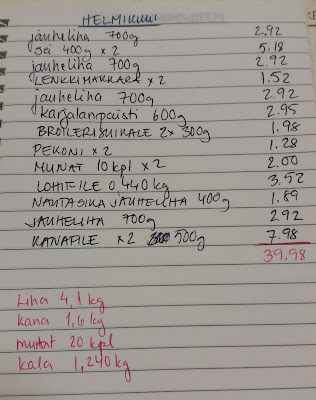 HELMIKUU
jauheliha 700g 2.92
Sei 400g x 2 5.18
jauheliha 700g 2.92
LENKKIMAKKARA x 2 1.52
jauheliha 700g 2.92
Karjalanpaisti 600g 2.95
BROILERISUIKALE 2x 300g 1.98
PEKONI x 2 1.28
MUNAT 10 kpl x 2 2.00
LOHIFILE 0,440 kg 3.52
NAUTASIKA JAUHELIHA 400g 1.89
JAUHELIHA 700g 2.92
KANAFILE x 2 500g 7.98
39.98
Liha 4,1 kg
kana 1,6 kg
munat 20 kpl
kala 1,240 kg